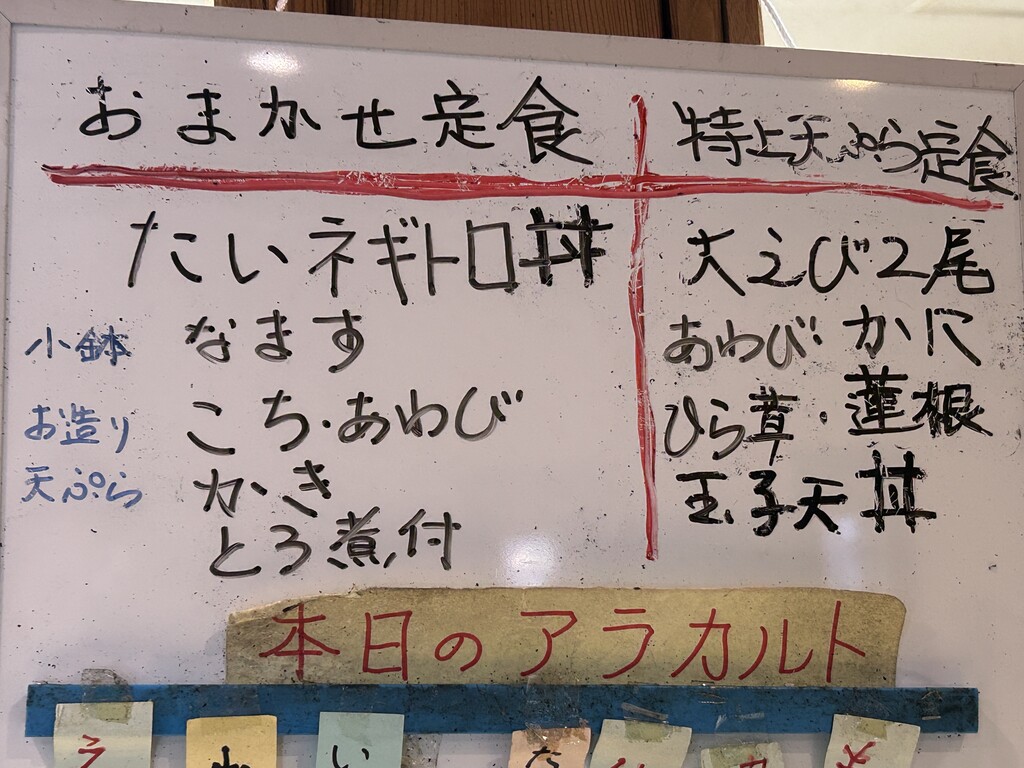 おまかせ定食
たいネギトロ丼
小鉢 なます
お造り こち・あわび
天ぷら かき
とろ煮付
特上天ぷら定食
大えび2尾
あわび・かに
ひら茸・蓮根
玉子天丼
本日のアラカルト
い
た